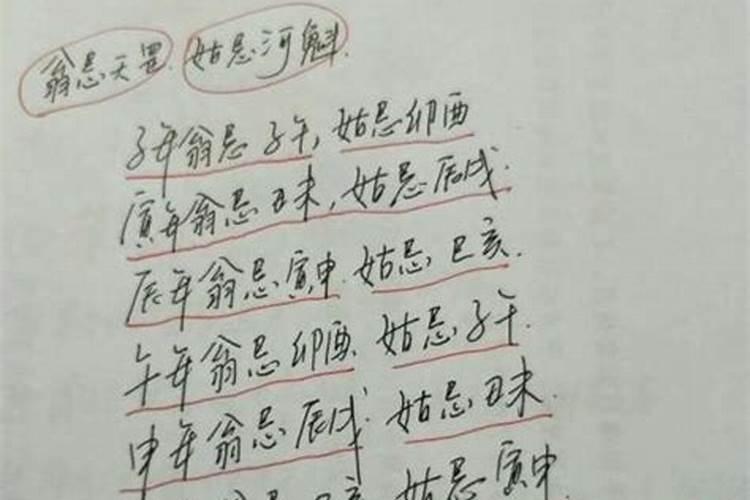 翁忌天罡. 姑忌河魁.
子年翁忌子午, 姑忌卯酉
寅年翁忌丑未, 姑忌辰戌.
辰年翁忌寅申. 姑忌巳亥.
午年翁忌卯酉 姑忌子午.
申年翁忌辰戌. 姑忌丑未.
翁忌巳亥 姑忌寅申